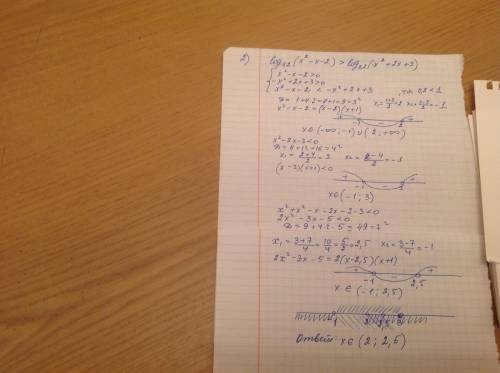 2) log₀,₂(x² - x - 2) > log₀,₂(-x² + 2x + 3)
x² - x - 2 > 0
-x² + 2x + 3 > 0
x² - x - 2 < -x² + 2x + 3 , т.к. 0,2 < 1
D = 1 + 4·2 = 8 + 1 = 9 = 3² x₁ = (1+3)/2 = 2 x₂ = (1-3)/2 = -1
x² - x - 2 = (x - 2)(x + 1)
+ -1 - 2 +
x ∈ (-∞; -1) ∪ (2; +∞)
x² - 2x - 3 < 0
D = 4 + 12 = 16 = 4²
x₁ = (2+4)/2 = 3 x₂ = (2-4)/2 = -1
(x - 3)(x + 1) < 0
+ -1 - 3 +
x ∈ (-1; 3)
x² + x² - x - 2x - 2 - 3 < 0
2x² - 3x - 5 < 0
D = 9 + 4·2·5 = 49 = 7²
x₁ = (3+7)/4 = 10/4 = 5/2 = 2,5 x₂ = (3-7)/4 = -1
2x² - 3x - 5 = 2(x - 2,5)(x + 1)
+ -1 - 2,5 +
x ∈ (-1; 2,5)
-1 2 2,5 3
Ответ: x ∈ (2; 2,5)